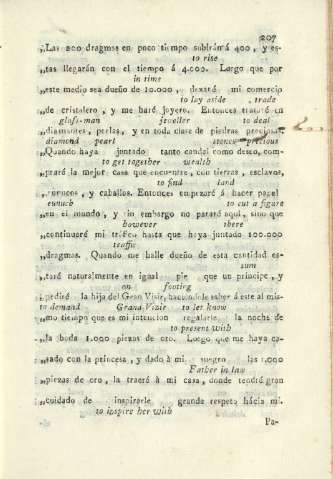 207
„Las 200 dragmas en poco tiempo subirán á 400, y es-
to rise
„tas llegarán con el tiempo á 4.000. Luego que por
in time
„este medio sea dueño de 10.000, dexaré mi comercio
to lay aside trade
„de cristalero, y me haré joyero. Entonces trataré en
glass-man jeweller to deal
„diamantes, perlas, y en toda clase de piedras preciosas.
diamond pearl stones precious
„Quando haya juntado tanto caudal como deseo, com-
to get together wealth
„praré la mejor casa que encuentre, con tierras, esclavos,
to find land
„eunucos, y caballos. Entonces empezaré á hacer papel
eunuch to cut a figure
„en el mundo, y sin embargo no pararé aquí, sino que
however there
„continuaré mi tráfico hasta que haya juntado 100.000
traffic
„dragmas. Quando me halle dueño de esta cantidad es-
sum
„taré naturalmente en igual pie que un príncipe, y
on footing
„pediré la hija del Gran Visir, haciendole saber á este al mis-
to demand Grand Visir to let know
„mo tiempo que es mi intencion regalarle la noche de
to present with
„la boda 1.000 piezas de oro. Luego que me haya ca-
„sado con la princesa, y dado á mi suegro las 1.000
Father in law
„piezas de oro, la traeré á mi casa, donde tendré gran
„cuidado de inspirarle grande respeto hácia mí.
to inspire her with
Pa-